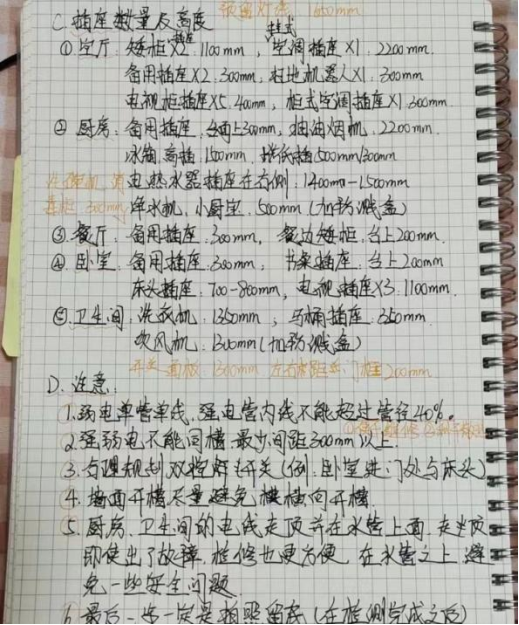 预留灯线 1300mm
C. 插座数量及高度
① 客厅: 矮柜×2. 1100mm, 挂式空调插座×1. 2200mm.
备用插座×2. 300mm, 扫地机器人×1. 300mm
电视柜插座×5. 400mm, 柜式空调插座×1. 300mm.
② 厨房: 备用插座. 台面上300mm, 抽油烟机. 2200mm.
冰箱 高插. 1500mm. 低插500mm/300mm
电热水器插座在右侧. 1400mm-1500mm
300mm 净水机, 小厨宝. 500mm (加防溅盒)
③ 餐厅: 备用插座. 300mm, 餐边矮柜. 台上200mm.
④ 卧室: 备用插座. 300mm, 书桌插座. 台上200mm
床头插座: 700-800mm, 电视插座×3. 1100mm.
⑤ 卫生间: 洗衣机. 1350mm, 马桶插座. 350mm
吹风机. 1300mm (加防溅盒)
开关面板 1300mm 左右 距离门框 200mm
D. 注意:
1. 弱电单管单线, 强电管内线不能超过管径40%。
2. 强弱电不能同槽. 最少间距300mm以上.
3. 合理规划双控灯开关 (例: 卧室进门处与床头)
4. 墙面开槽尽量避免横向开槽
5. 厨房, 卫生间的电线走顶并在水管上面, 走顶
即使出了故障, 检修也更方便. 在水管之上, 避
免一些安全问题
6. 最后一步一定是拍照留底 (在检测完成之后)